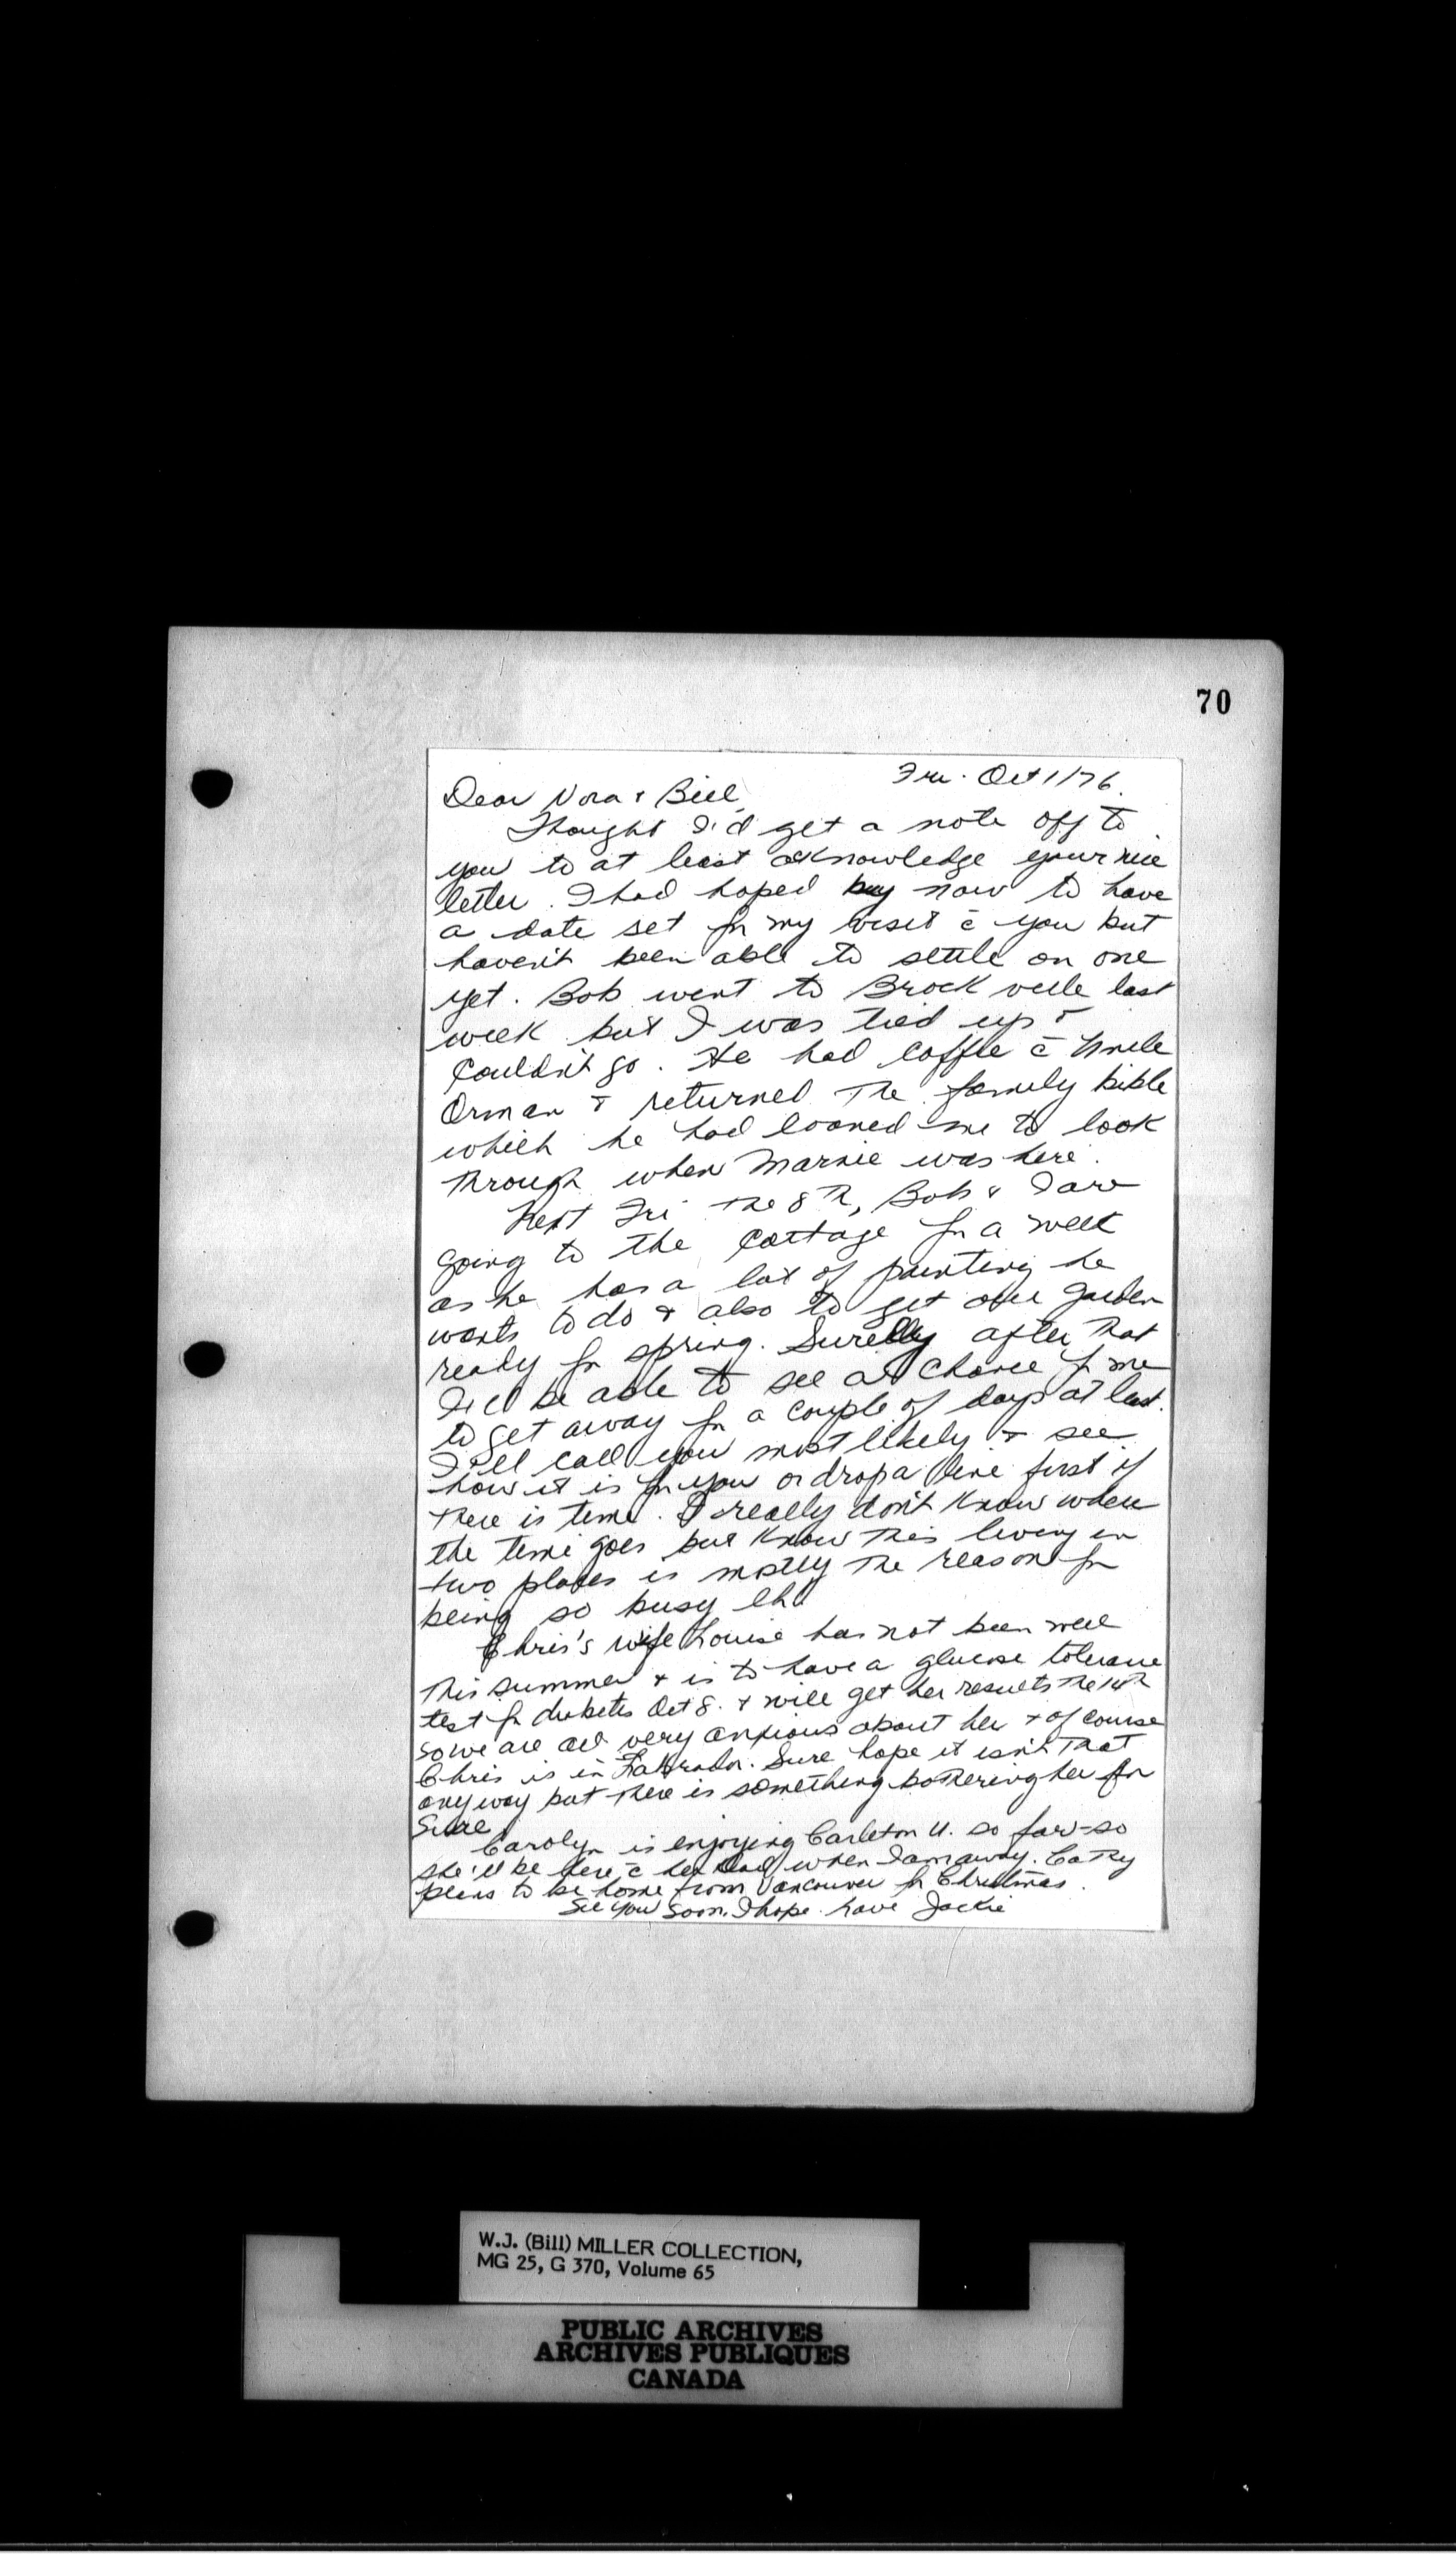 70
Fri. Oct 1/76.
Dear Nora & Bill,
Thought I'd get a note off to
you to at least acknowledge your nice
letter. I had hoped by now to have
a date set for my visit c̄ you but
haven't been able to settle on one
yet. Bob went to Brockville last
week but I was tied up &
couldn't go. He had coffee c̄ Uncle
Orman & returned the family bible
which he had loaned me to look
through when Marnie was here.
Next Fri the 8th, Bob & I are
going to the cottage for a week
as he has a lot of painting he
wants to do & also to get our garden
ready for spring. Surely after that
I'll be able to see a chance for me
to get away for a couple of days at last.
I'll call you most likely & see
how it is for you or drop a line first if
there is time. I really don't know where
the time goes but know this living in
two places is mostly the reason for
being so busy eh!
Chris's wife Louise has not been well
this summer & is to have a glucose tolerance
test for diabetes Oct 8. & will get her results the 14th
so we are all very anxious about her & of course
Chris is in Labrador. Sure hope it isn't that
anyway but there is something bothering her for
sure.
Carolyn is enjoying Carleton U. so far - so
she'll be here c̄ her Dad when I am away. Cathy
plans to be home from Vancouver for Christmas.
See you soon. I hope. Love Jackie
W.J. (Bill) MILLER COLLECTION,
MG 25, G 370, Volume 65
PUBLIC ARCHIVES
ARCHIVES PUBLIQUES
CANADA